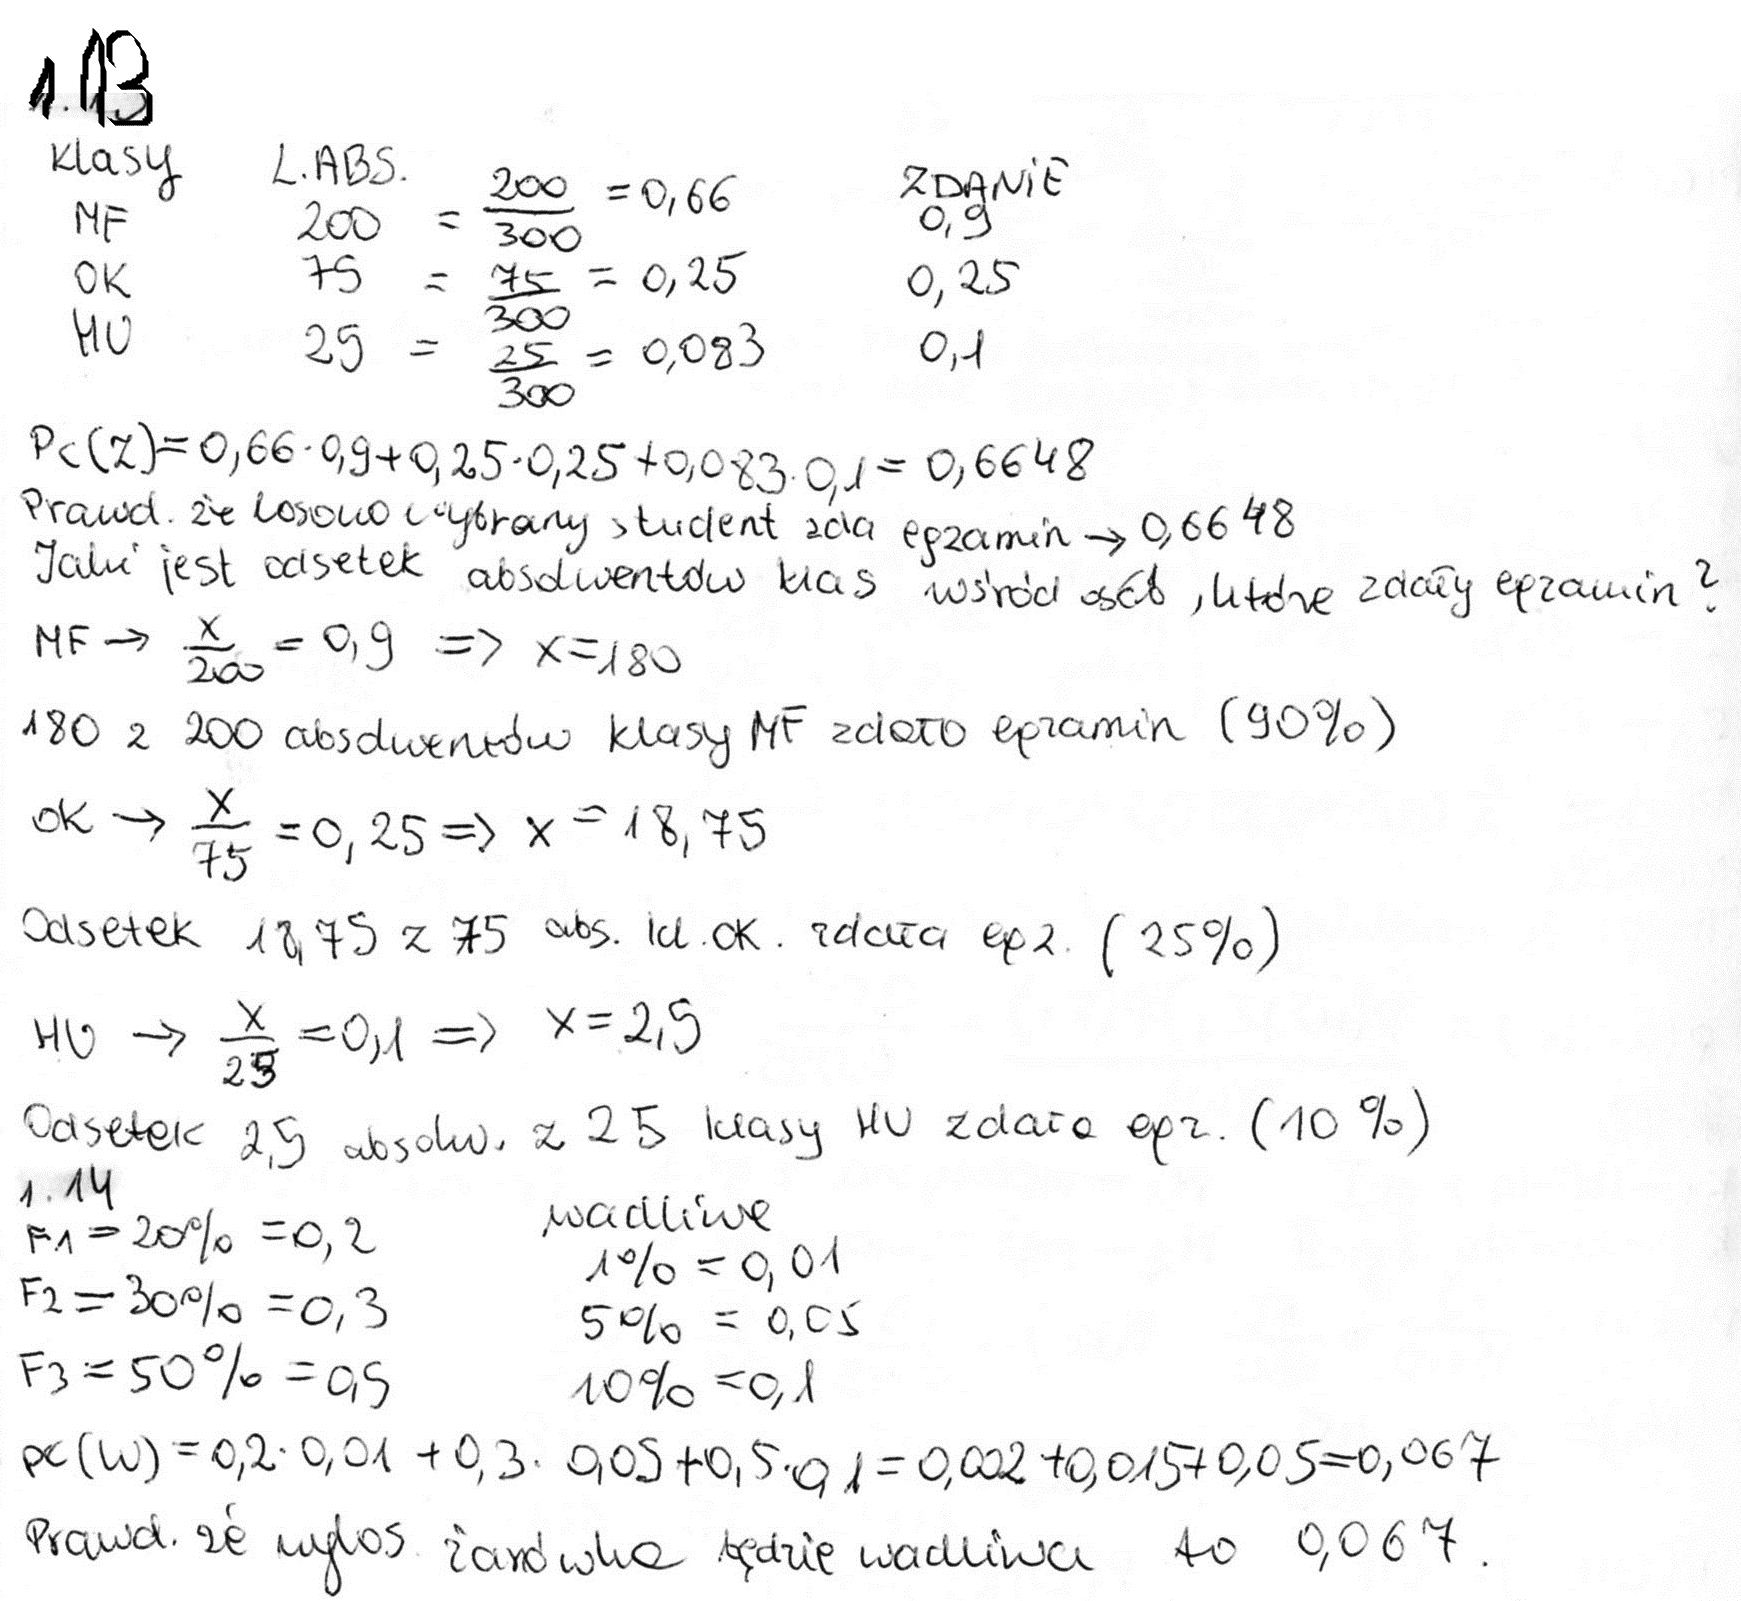 1.13
Klasy L.ABS. ZDANIE
MF 200 = 200/300 = 0,66 0,9
OK 75 = 75/300 = 0,25 0,25
HU 25 = 25/300 = 0,083 0,1
Pc(Z)=0,66·0,9+0,25·0,25+0,083·0,1=0,6648
Prawd. że losowo wybrany student zda egzamin → 0,6648
Jaki jest odsetek absolwentów klas wśród osób, które zdały egzamin?
MF → x/200 = 0,9 => x=180
180 z 200 absolwentów klasy MF zdało egzamin (90%)
OK → x/75 = 0,25 => x = 18,75
Odsetek 18,75 z 75 abs. kl. OK. zdała egz. (25%)
HU → x/25 = 0,1 => x = 2,5
Odsetek 2,5 absolw. z 25 klasy HU zdała egz. (10%)
1.14
F1 = 20% = 0,2 wadliwe
1% = 0,01
F2 = 30% = 0,3 5% = 0,05
F3 = 50% = 0,5 10% = 0,1
pc(W) = 0,2·0,01 + 0,3·0,05+0,5·0,1=0,002+0,015+0,05=0,067
Prawd. że wylos. żarówka będzie wadliwa to 0,067.